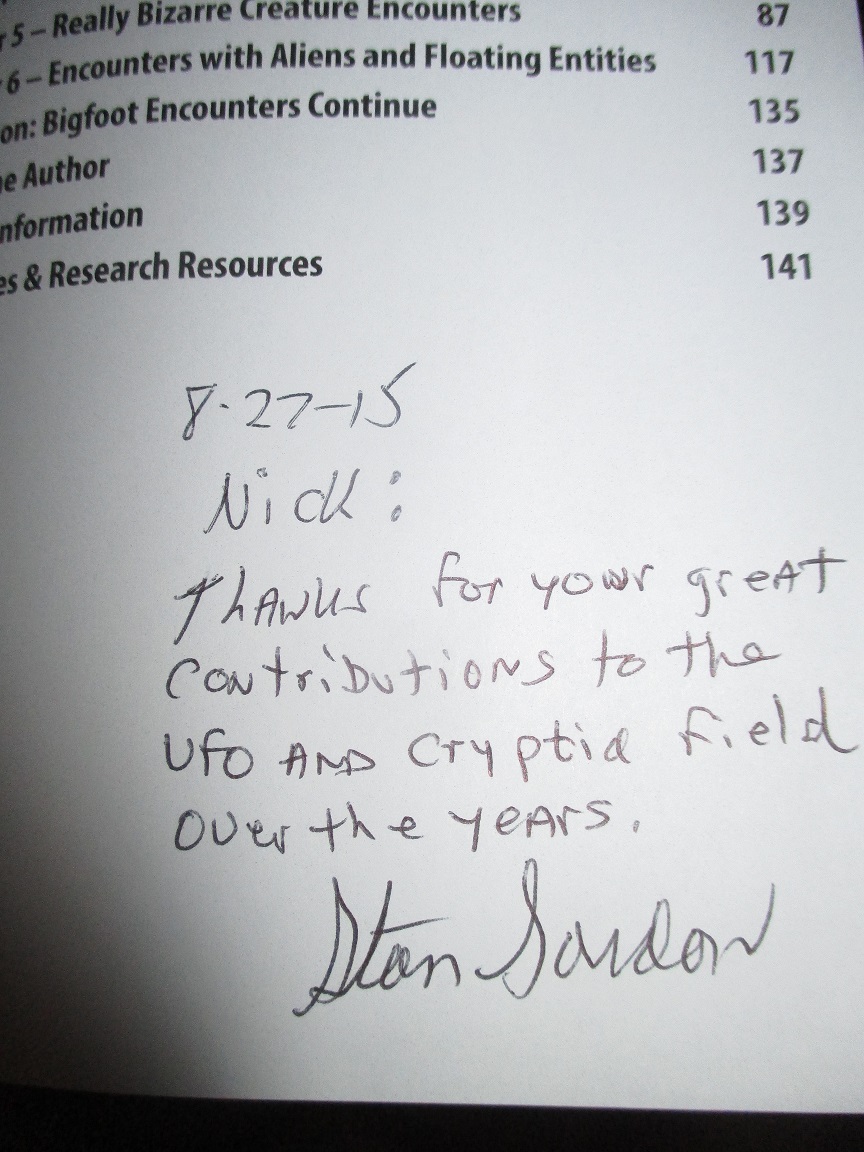 r 5 – Really Bizarre Creature Encounters 87
6 – Encounters with Aliens and Floating Entities 117
on: Bigfoot Encounters Continue 135
e Author 137
nformation 139
es & Research Resources 141
8-27-15
Nick:
Thanks for your great
contributions to the
UFO AND Cryptid field
over the years.
Stan Gordon